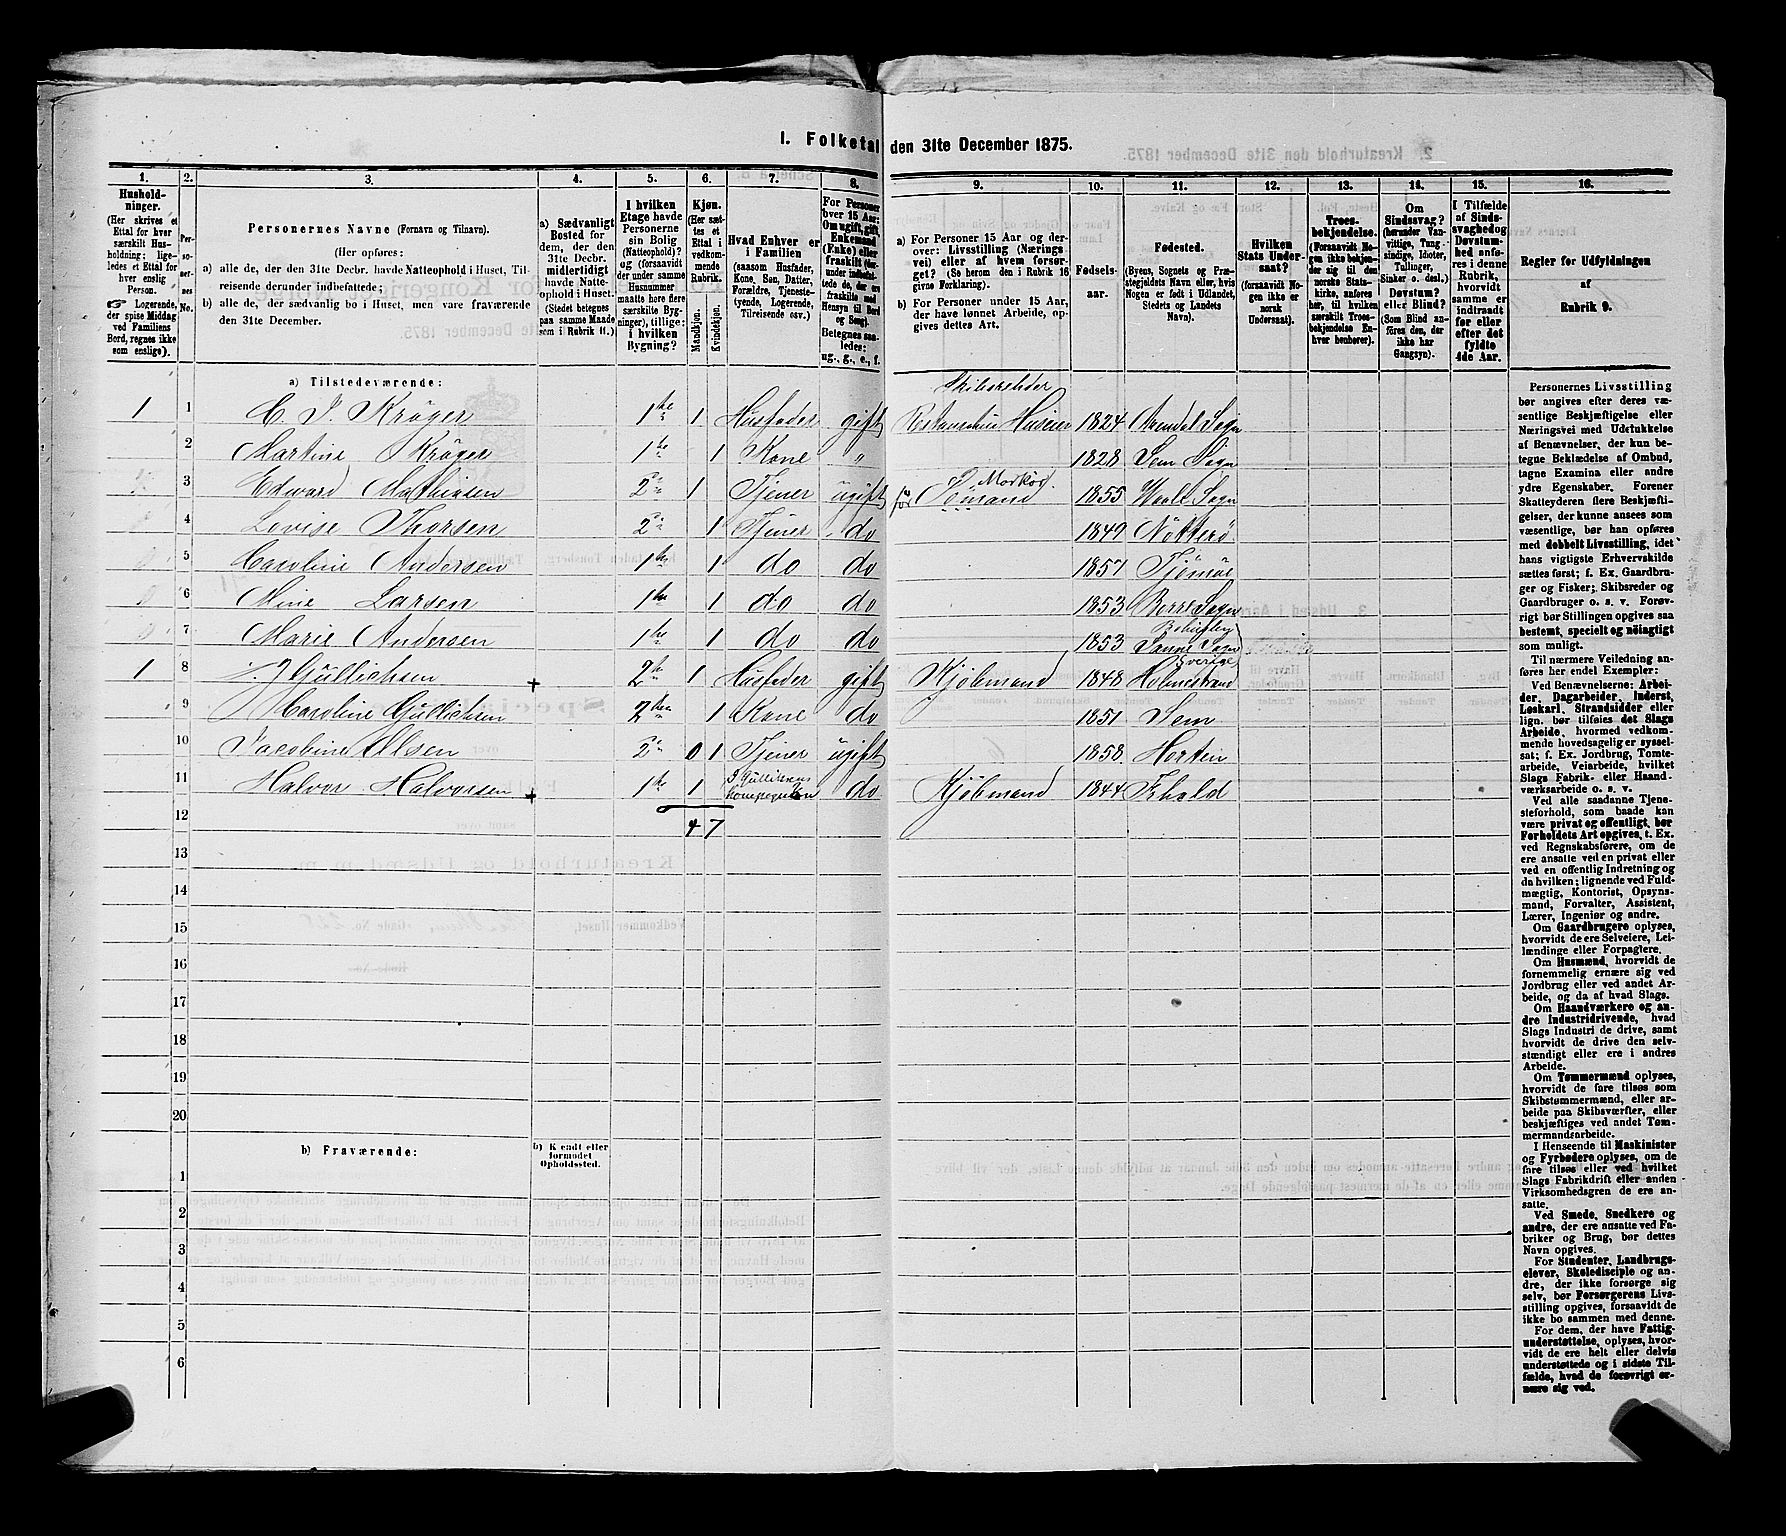 1. Folketal den 31te December 1875.
1.
Hushold-
ninger.
(Her skrives et
Ettal for hver
særskilt Hus-
holdning; lige-
ledes et Ettal for
hver enslig
Person.
☞ Logerende,
der spise Middag
ved Familiens
Bord, regnes ikke
som enslige).
2.
Per-
so-
ner-
nes
No.
3.
Personernes Navne (Fornavn og Tilnavn).
(Her opføres:
a) alle de, der den 31te Decbr. havde Natteophold i Huset, Til-
reisende derunder indbefattede;
b) alle de, der sædvanlig bo i Huset, men vare fraværende
den 31te December.
4.
a) Sædvanligt
Bosted for
dem, der den
31te Decbr.
midlertidigt
havde Natte-
ophold i Huset.
(Stedet betegnes
paa samme Maade
som i Rubrik 11.)
5.
I hvilken
Etage havde
Personerne
sin Bolig
(Natteophold)?
og (forsaavidt
der under samme
Husnummer
maatte høre flere
særskilte Byg-
ninger), tillige:
i hvilken
Bygning?
6.
Kjøn.
(Her sæt-
tes et
Ettal i
vedkom-
mende
Rubrik.
Mandkjøn.
Kvindekjøn.
7.
Hvad Enhver er
i Familien
(saasom Husfader,
Kone, Søn, Datter,
Forældre, Tjeneste-
tyende, Logerende,
Tilreisende osv.)
8.
For Personer
over 15 Aar:
Om ugift, gift,
Enkemand
(Enke) eller
fraskilt
Betegnes saa-
ledes:
ug., g., e., f.
9.
a) For Personer 15 Aar og der-
over: Livsstilling (Nærings-
vei) eller af hvem forsør-
get? (Se herom den i Rubrik 16
givne Forklaring).
b) For Personer under 15 Aar,
der have lønnet Arbeide, op-
gives dettes Art.
10.
Fødsels-
aar.
11.
Fødested.
(Byens, Sognets og Præ-
stegjeldets Navn eller, hvis
Nogen er født i Udlandet,
Stedets og Landets
Navn).
12.
Hvilken
Stats Under-
saat?
(forsaavidt No-
gen ikke er
norsk
Undersaat).
13.
Troes-
bekjendelse.
(Forsaavidt No-
gen ikke bekjen-
der sig til den
norske Stats-
kirke, anføres
her, til hvilken
særskilt Troes-
bekjendelse En-
hver henhører).
14.
Om
Sindssvag?
(herunder Van-
vittige, Tung-
sindige, Idioter,
Tullinger,
Sinker o. desl.)
Døvstum?
eller Blind?
(Som Blind an-
føres den, der
ikke har
Gangsyn).
15.
I Tilfælde
af Sinds-
svaghed og
Døvstum-
hed anfø-
res i denne
Rubrik,
hvorvidt
samme er
indtraadt
før eller
efter det
fyldte
4de Aar.
16.
Regler for Udfyldningen
af
Rubrik 9.
a) Tilstedeværende:
Skibsreder
1 1 C. J. Krøger 1ste 1 Husfader gift Restauratør Huseier 1824 Arendal Sogn
2 Martine Krøger 1ste 1 Kone " 1828 Sem Sogn
3 Edward Mathisen 2den 1 Tjener ugift Sømand 1855 Sogn
4 Lovise Thorsen 2den 1 Tjener do 1849 Nøtterø
5 Caroline Andersen 1ste 1 do do 1857 Tjømøe
6 Mine Larsen 1ste 1 do do 1853 Borre Sogn
7 Marie Andersen 1ste 1 do do 1853 Sanne Sogn
Sverige
1 8 J Gullichsen + 2den 1 Husfader gift Kjøbmand 1848 Holmestrand
9 Karoline Gullichsen 2den 1 Kone do 1851 Sem
10 Jacobine Olsen 2den 0 1 Tjener ugift 1858 Horten
11 Halvor Halvorsen + 1ste 1 J Gullichsens do Kjøbmand 1844
12 4 7
13
14
15
16
17
18
19
20
b) Fraværende:
b) Kjendt eller
formodet
Opholdssted.
1
2
3
4
5
6
Personernes Livsstilling
bør angives efter deres væ-
sentlige Beskjæftigelse eller
Næringsvei med Udelukkelse
af Benævnelser, der kun be-
tegne Beklædelse af Ombud,
tagne Examina eller andre
ydre Egenskaber. Forener
Skatteyderen flere Beskjæfti-
gelser, der kunne ansees som
væsentlige, bør han opføres
med dobbelt Livsstilling, idet
hans vigtigste Erhvervskilde
sættes først; f. Ex. Gaardbru-
ger og Fisker; Skibsreder og
Gaardbruger o. s. v. Forøv-
rigt bør Stillingen opgives saa
bestemt, specielt og nøiagtigt
som muligt.
Til nærmere Veiledning an-
føres her endel Exempler:
Ved Benævnelserne: Arbei-
der, Dagarbeider, Inderst,
Løskarl, Strandsidder eller
lign. bør tilføies det Slags
Arbeide, hvormed vedkom-
mende hovedsagelig er syssel-
sat; f. Ex. Jordbrug, Tomte-
arbeide, Veiarbeide, hvilket
Slags Fabrik- eller Haand-
værksarbeide o. s. v.
Ved alle saadanne Tjene-
steforhold, som baade kan
være privat og offentligt, bør
Forholdets Art opgives, t. Ex.
ved Regnskabsførere, om de
ere ansatte ved en privat eller
ved en offentlig Indretning og
da hvilken; lignende ved Fuld-
mægtig, Kontorist, Opsyns-
mand, Forvalter, Assistent,
Lærer, Ingeniør og andre.
Om Gaardbrugere oplyses,
hvorvidt de ere Selveiere, Lei-
lændinge eller Forpagtere.
Om Husmænd, hvorvidt de
fornemmelig ernære sig ved
Jordbrug eller ved andet Ar-
beide, og da af hvad Slags.
Om Haandværkere og an-
dre Industridrivende, hvad
Slags Industri de drive, samt
hvorvidt de drive den selv-
stændigt eller ere i andres
Arbeide.
Om Tømmermænd oplyses,
hvorvidt de fare tilsøs som
Skibstømmermænd, eller ar-
beide paa Skibsværfter, eller
beskjæftiges ved andet Tøm-
mermandsarbeide.
I Henseende til Maskinister
og Fyrbødere oplyses, om de
fare tilsøs eller ved hvilket
Slags Fabrikdrift eller anden
Virksomhedsgren de ere an-
satte.
Ved Smede, Snedkere og
andre, der ere ansatte ved Fa-
briker og Brug, bør dettes
Navn opgives.
For Studenter, Landbrugs-
elever, Skoledisciple og an-
dre, der ikke forsørge sig
selv, bør Forsørgerens Livs-
stilling opgives, forsaavidt de
ikke bo sammen med denne.
For dem, der have Fattig-
understøttelse, oplyses, hvor-
vidt de ere helt eller delvis
understøttede og i sidste Til-
fælde, hvad de forøvrigt er-
nære sig ved.